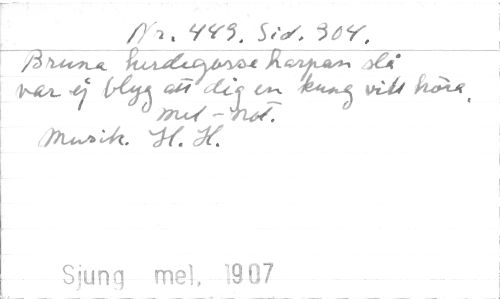 Nr. 449. Sid. 304.
Bruna herdegosse harpan slå
var ej blyg att dig en kung vill höra,
mel-not.
Musik. H. H.
Sjung mel, 1907